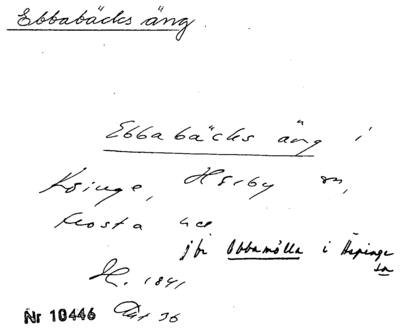 Ebbabäcks äng
Ebbabäcks äng i
Ksinge, Hörby sn,
Frosta hd
jfr Obbamölla i Äspinge
sn
H. 1841
Nr 10446 36